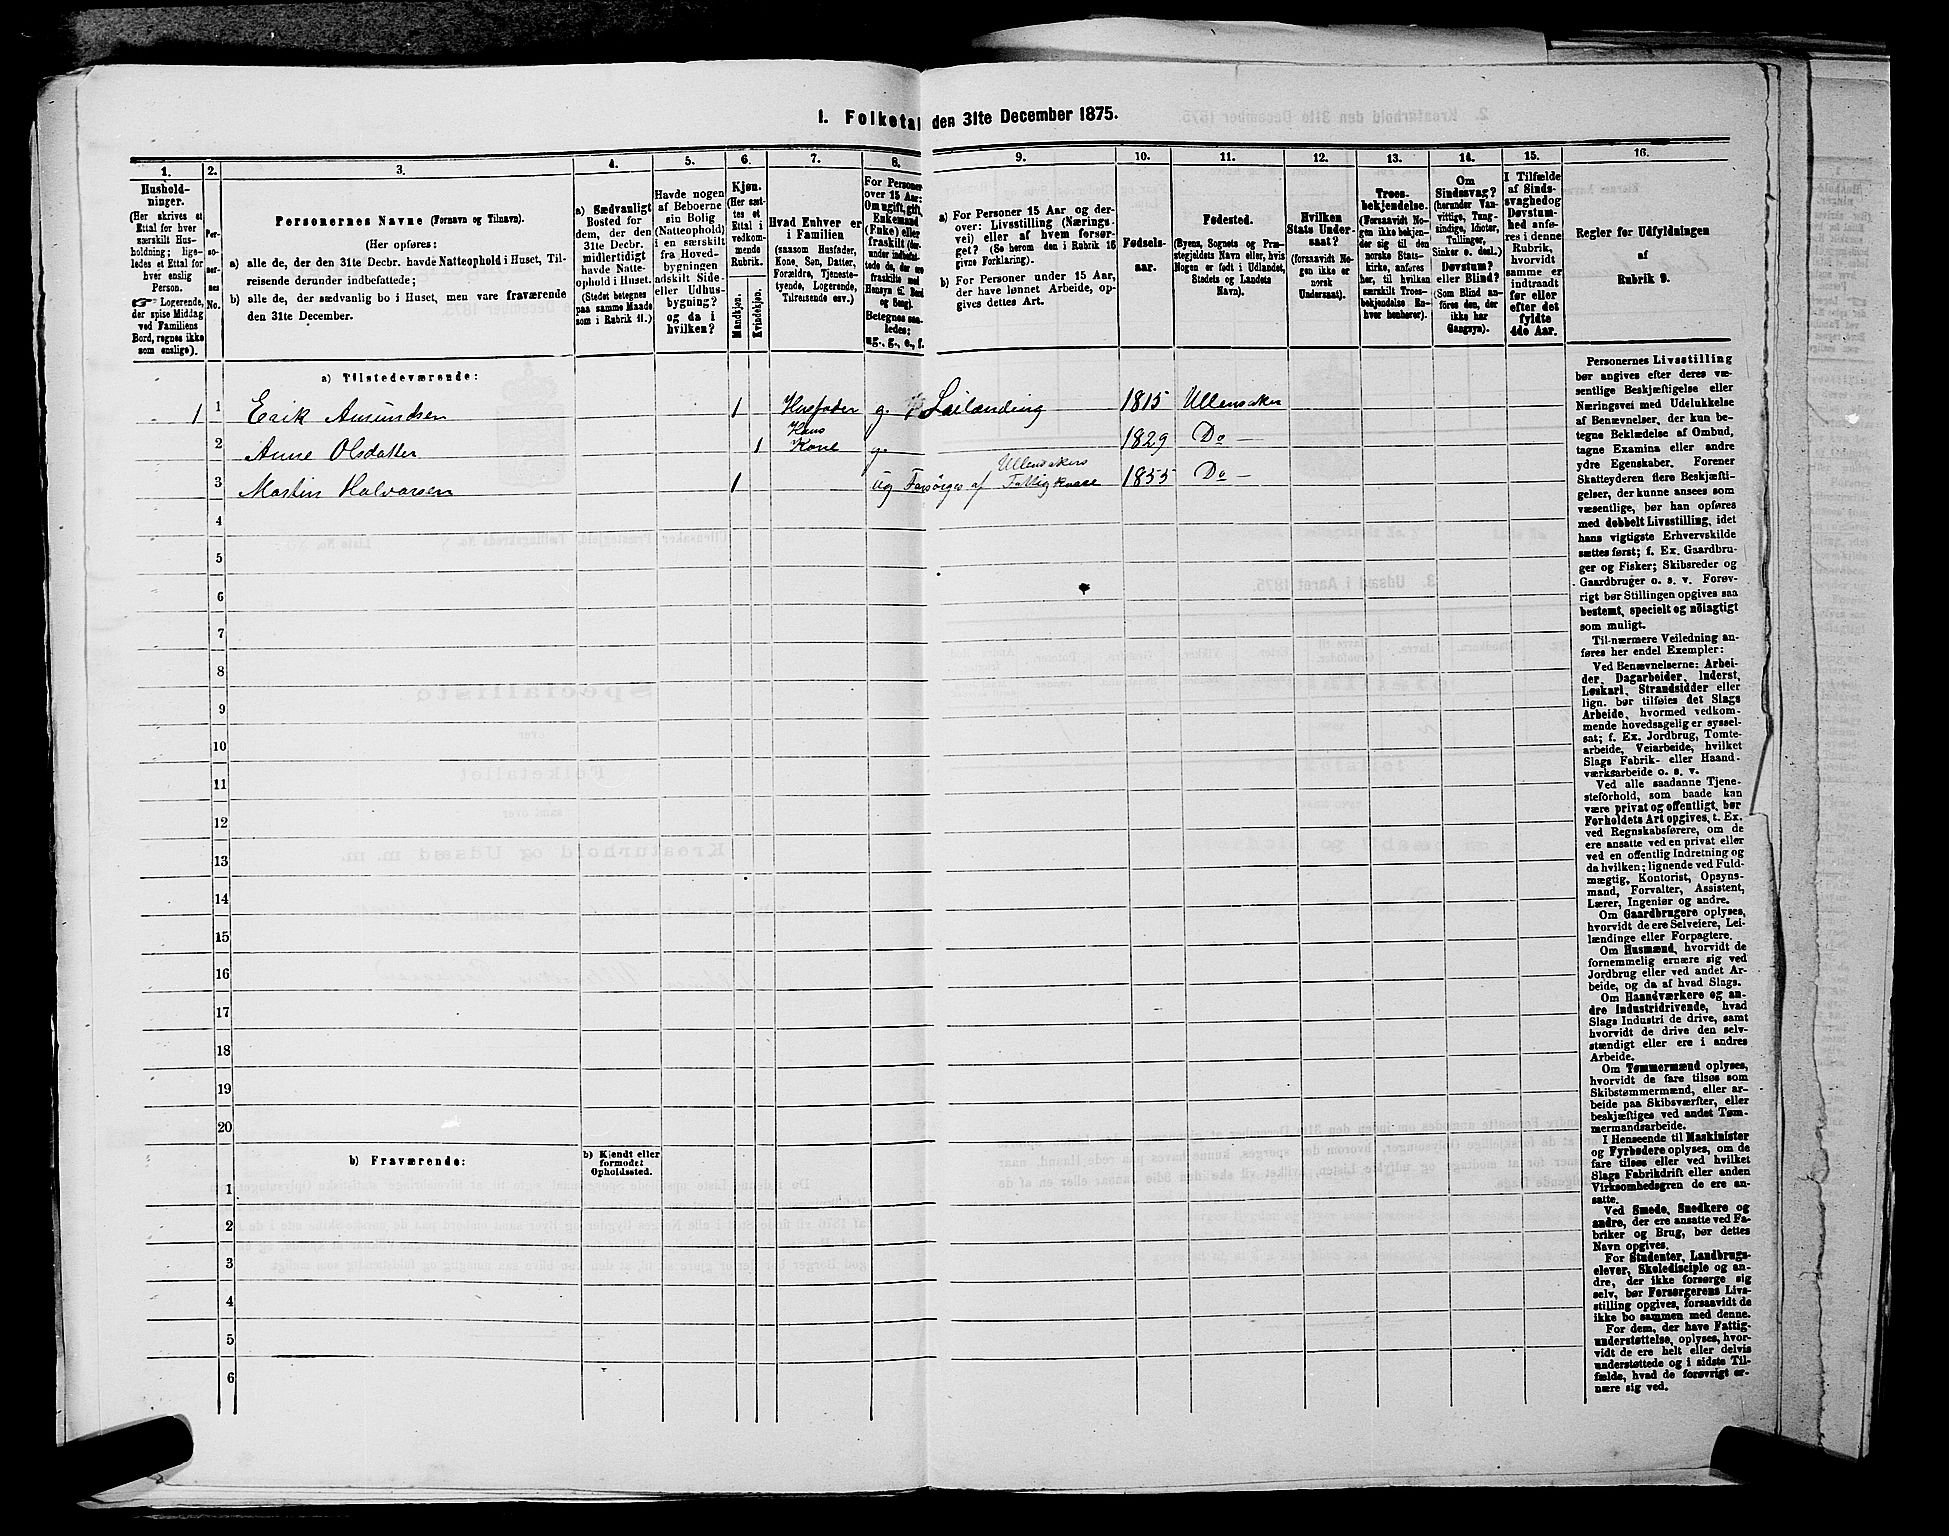 1. Folketal den 31te December 1875.
1.
2.
3.
4.
5.
6.
7.
8.
9.
10.
11.
12.
13.
14.
15.
16.
Hushold-
ninger.
(Her skrives et
Ettal for hver
særskilt Hus-
holdning; lige-
ledes et Ettal for
hver enslig
Person.
☞ Logerende,
der spise Middag
ved Familiens
Bord, regnes ikke
som enslige).
Per-
so-
ner-
nes
No.
Personernes Navne (Fornavn og Tilnavn).
(Her opføres:
a) alle de, der den 31te Decbr. havde Natteophold i Huset, Til-
reisende derunder indbefattede;
b) alle de, der sædvanlig bo i Huset, men vare fraværende
den 31te December.
a) Sædvanligt
Bosted for
dem, der den
31te Decbr.
midlertidigt
havde Natte-
ophold i Huset.
(Stedet betegnes
paa samme Maade
som i Rubrik 11.)
Havde nogen
af Beboerne
sin Bolig
(Natteophold)
i en særskilt
fra Hoved-
bygningen
adskilt Side-
eller Udhus-
bygning?
og da i
hvilken?
Kjøn.
(Her sæt-
tes et
Ettal i
vedkom-
mende
Rubrik.
Mandkjøn.
Kvindekjøn.
Hvad Enhver er
i Familien
(saasom Husfader,
Kone, Søn, Datter,
Forældre, Tjeneste-
tyende, Logerende,
Tilreisende osv.)
For Personer
over 15 Aar:
Om ugift, gift,
Enkemand
(Enke) eller
fraskilt (her-
under indbefat-
tede de, der ere
fraskilte med
Hensyn til Bord
og Seng).
Betegnes saa-
ledes:
ug., g., e., f.
a) For Personer 15 Aar og der-
over: Livsstilling (Nærings-
vei) eller af hvem forsør-
get? (Se herom den i Rubrik 16
givne Forklaring).
b) For Personer under 15 Aar,
der have lønnet Arbeide, op-
gives dettes Art.
Fødsels-
aar.
Fødested.
(Byens, Sognets og Præ-
stegjeldets Navn eller, hvis
Nogen er født i Udlandet,
Stedets og Landets
Navn).
Hvilken
Stats Under-
saat?
(forsaavidt No-
gen ikke er
norsk
Undersaat).
Troes-
bekjendelse.
(Forsaavidt No-
gen ikke bekjen-
der sig til den
norske Stats-
kirke, anføres
her, til hvilken
særskilt Troes-
bekjendelse En-
hver henhører).
Om
Sindssvag?
(herunder Van-
vittige, Tung-
sindige, Idioter,
Tullinger,
Sinker o. desl.)
Døvstum?
eller Blind?
(Som Blind an-
føres den, der
ikke har
Gangsyn).
I Tilfælde
af Sinds-
svaghed og
Døvstum-
hed anfø-
res i denne
Rubrik,
hvorvidt
samme er
indtraadt
før eller
efter det
fyldte
4de Aar.
Regler for Udfyldningen
af
Rubrik 9.
a) Tilstedeværende:
1 1 Erik Amundsen 1 Husfader g. Leilænding 1815 Ullensaker
2 Anne Olsdatter 1 Hans Kone g. 1829 Do —
3 Martin Halvorsen 1 ug Forsörges af Ullensakers Fattigkasse 1855 Do —
4
5
6
7
8
9
10
11
12
13
14
15
16
17
18
19
20
b) Fraværende:
b) Kjendt eller
formodet
Opholdssted.
1
2
3
4
5
6
Personernes Livsstilling
bør angives efter deres væ-
sentlige Beskjæftigelse eller
Næringsvei med Udelukkelse
af Benævnelser, der kun be-
tegne Beklædelse af Ombud,
tagne Examina eller andre
ydre Egenskaber. Forener
Skatteyderen flere Beskjæfti-
gelser, der kunne ansees som
væsentlige, bør han opføres
med dobbelt Livsstilling, idet
hans vigtigste Erhvervskilde
sættes først; f. Ex. Gaardbru-
ger og Fisker; Skibsreder og
Gaardbruger o. s. v. Forøv-
rigt bør Stillingen opgives saa
bestemt, specielt og nöiagtigt
som muligt.
Til nærmere Veiledning an-
føres her endel Exempler:
Ved Benævnelserne: Arbei-
der, Dagarbeider, Inderst,
Løskarl, Strandsidder eller
lign. bør tilføies det Slags
Arbeide, hvormed vedkom-
mende hovedsagelig er syssel-
sat; f. Ex. Jordbrug, Tomte-
arbeide, Veiarbeide, hvilket
Slags Fabrik- eller Haand-
værksarbeide o. s. v.
Ved alle saadanne Tjene-
steforhold, som baade kan
være privat og offentligt, bør
Forholdets Art opgives, t. Ex.
ved Regnskabsførere, om de
ere ansatte ved en privat eller
ved en offentlig Indretning og
da hvilken; lignende ved Fuld-
mægtig, Kontorist, Opsyns-
mand, Forvalter, Assistent,
Lærer, Ingeniør og andre.
Om Gaardbrugere oplyses,
hvorvidt de ere Selveiere, Lei-
lændinge eller Forpagtere.
Om Husmænd, hvorvidt de
fornemmelig ernære sig ved
Jordbrug eller ved andet Ar-
beide, og da af hvad Slags.
Om Haandværkere og an-
dre Industridrivende, hvad
Slags Industri de drive, samt
hvorvidt de drive den selv-
stændigt eller ere i andres
Arbeide.
Om Tømmermænd oplyses,
hvorvidt de fare tilsøs som
Skibstømmermænd, eller ar-
beide paa Skibsværfter, eller
beskjæftiges ved andet Tøm-
mermandsarbeide.
I Henseende til Maskinister
og Fyrbødere oplyses, om de
fare tilsøs eller ved hvilket
Slags Fabrikdrift eller anden
Virksomhedsgren de ere an-
satte.
Ved Smede, Snedkere og
andre, der ere ansatte ved Fa-
briker og Brug, bør dettes
Navn opgives.
For Studenter, Landbrugs-
elever, Skoledisciple og an-
dre, der ikke forsørge sig
selv, bør Forsørgerens Livs-
stilling opgives, forsaavidt de
ikke bo sammen med denne.
For dem, der have Fattig-
understøttelse, oplyses, hvor-
vidt de ere helt eller delvis
understøttede og i sidste Til-
fælde, hvad de forøvrigt er-
nære sig ved.